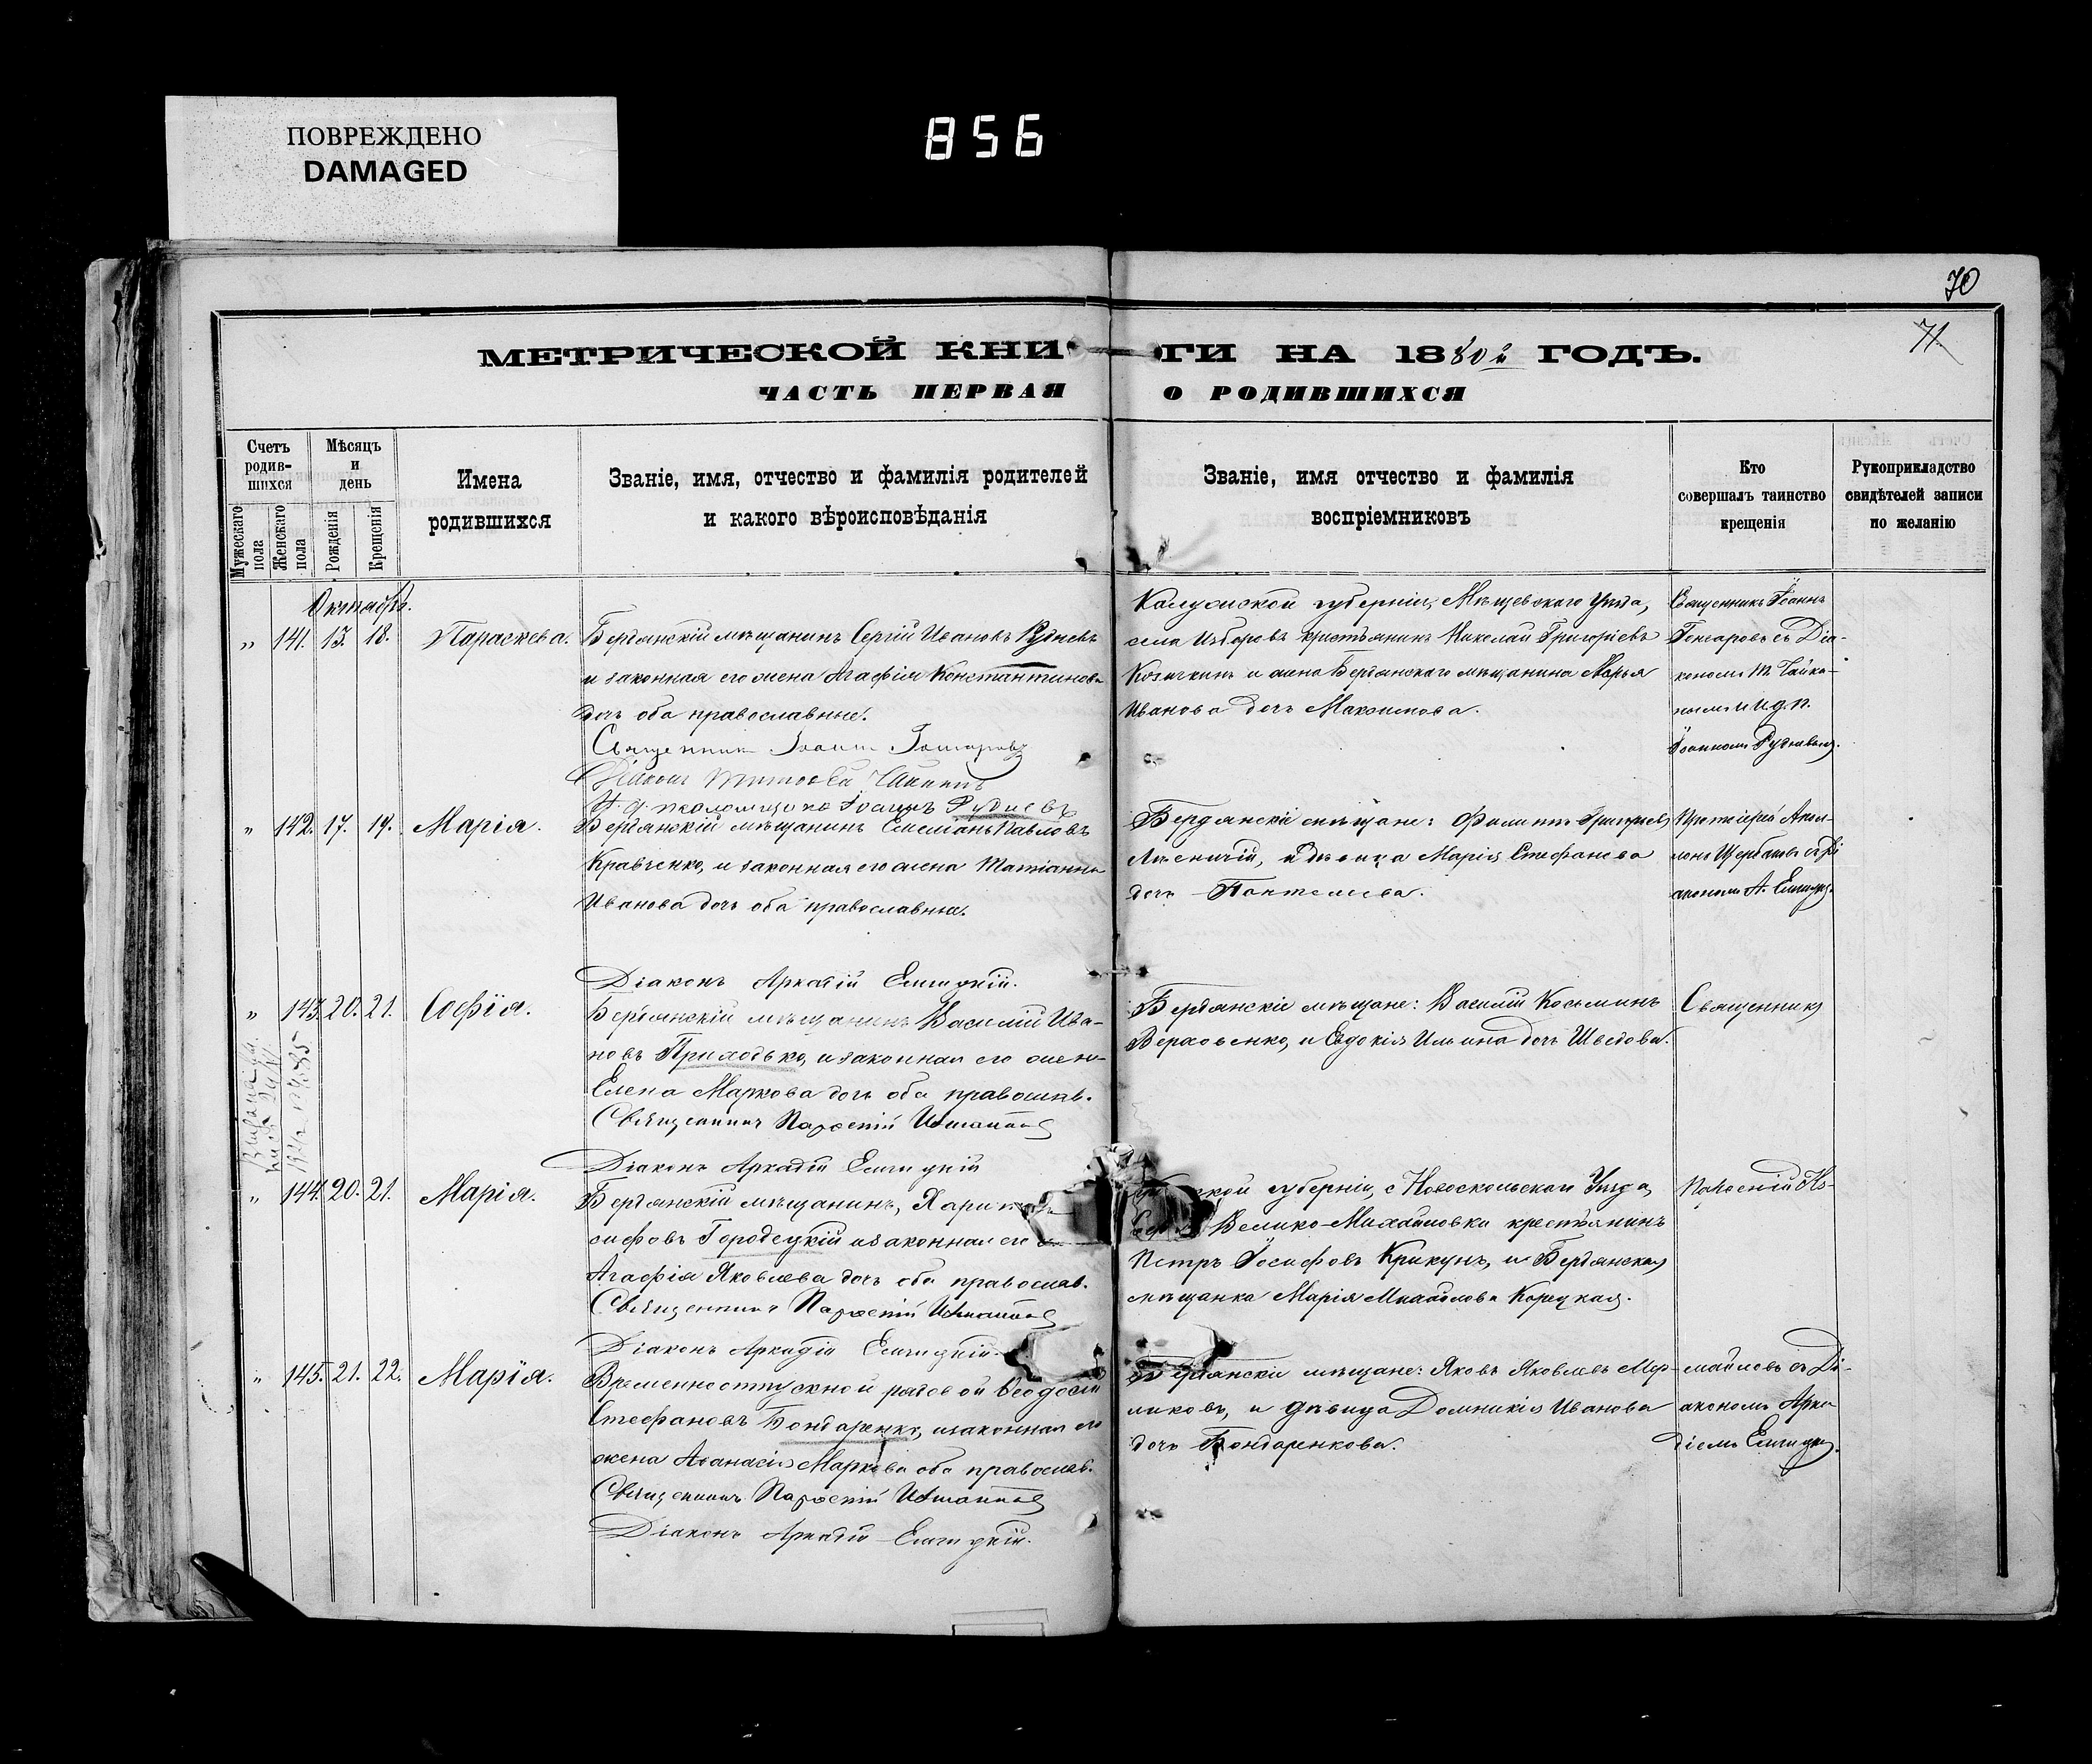 ПОВРЕЖДЕНО
DAMAGED
856
70
71.
МЕТРИЧЕСКОЙ КНИГИ НА 1880й ГОДЪ.
ЧАСТЬ ПЕРВАЯ О РОДИВШИХСЯ
Счетъ родив-шихся
Мужескаго пола
Женскаго пола
Мѣсяцъ и день
Рожденія
Крещенія
Имена родившихся
Званіе, имя, отчество и фамилія родителей
и какого вѣроисповѣданія
Званіе, имя отчество и фамилія
воспріемниковъ
Кто
совершалъ таинство
крещенія
Рукоприкладство
свидѣтелей записи
по желанію
Октябрь.
„ 141. 13. 18. Параскева.
Бердянскій мѣщанинъ Сергій Ивановъ
и законная его жена Агафія Константинова
дочь оба православные.
Священникъ Іоаннъ Гончаровъ
Діаконъ Чайкинъ
И. д. псаломщика Іоаннъ Рудневъ
Калужской губерніи, Мещевскаго Уѣзда,
села крестьянинъ Николай Григорьевъ
и жена Бердянскаго мѣщанина Марья
Иванова дочь Максимова.
Священникъ Іоаннъ
Гончаровъ съ Діа-
кономъ Т. Чайки-
нымъ и И. д. п.
Іоанномъ Рудневымъ.
„ 142. 17. 19. Марія.
Бердянскій мѣщанинъ Павловъ
Кравченко, и законная его жена Татіанна
Иванова дочь оба православные.
Діаконъ Аркадій
Бердянскіе мѣщане: Филиппъ Григорьевъ
и дѣвица Марія Стефанова
дочь Пантелиева.
Протоіерей Апол-
лонъ Щербаковъ съ Ді
акономъ А.
„ 143. 20. 21. Софія.
Бердянскій мѣщанинъ Василій Ива-
новъ Приходько, и законная его жена
Елена Маркова дочь оба православ.
Священникъ Паҥсій Измаиловъ
Діаконъ Аркадій
Бердянскіе мѣщане: Василій Косьминъ
Верховенко, и Евдокія Ильина дочь Шведова.
Священникъ
„ 144. 20. 21. Марія.
Бердянскій мѣщанинъ,
сифовъ Городецкій и законная его
Агафія Яковлева дочь оба православ.
Священникъ Измаиловъ
Діаконъ Аркадій
ской губерніи, Новоскольскаго Уѣзда,
Велико-Михайловки крестьянинъ
Петръ Іосифовъ Крикунъ, и Бердянская
мѣщанка Марія Михайлова Корецкая.
Из-
„ 145. 21. 22. Марія.
Временноотпускной рядовой Ѳеодосій
Стефановъ Бондаренко, и законная его
жена Аѳанасія Маркова оба православ.
Священникъ Измаиловъ
Діаконъ Аркадій
Бердянскіе мѣщане: Яковъ Яковлевъ Мер-
ликовъ, и дѣвица Домникія Иванова
дочь Бондаренкова.
маиловъ съ Ді-
акономъ Арка-
діемъ